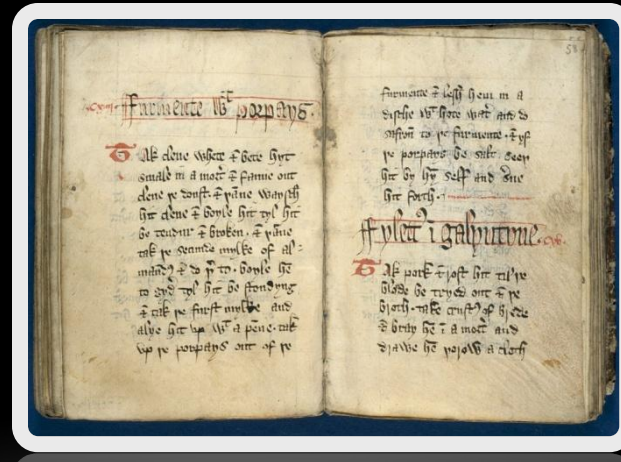 Furmente wt porpays.
Tak clene whete & bete hyt
smale in a mort & fanne out
clene þe doust & þane waysch
hit clene & boyle hit tyl hit
be tendur & broken. & þane
tak þe secunde mylke of al=
mand & do þ to. boyle he
to gyd tyl hit be stondyng
& tak þe furst mylke and
alye hit vp wt a pene. tak
vp þe porpays out of þe
58
furmente & lesh hem in a
dische wt hote wat and do
safron to þe furmente. & yf
þe porpays be salt seeþ
hit by hy self and sue
hit forth.
ffylett i galyntyne.
Tak pork & rost hit til þe
blode be tryed out & þe
broth. take crust of brede
& bray he i a mort and
drawe he þorow a cloth